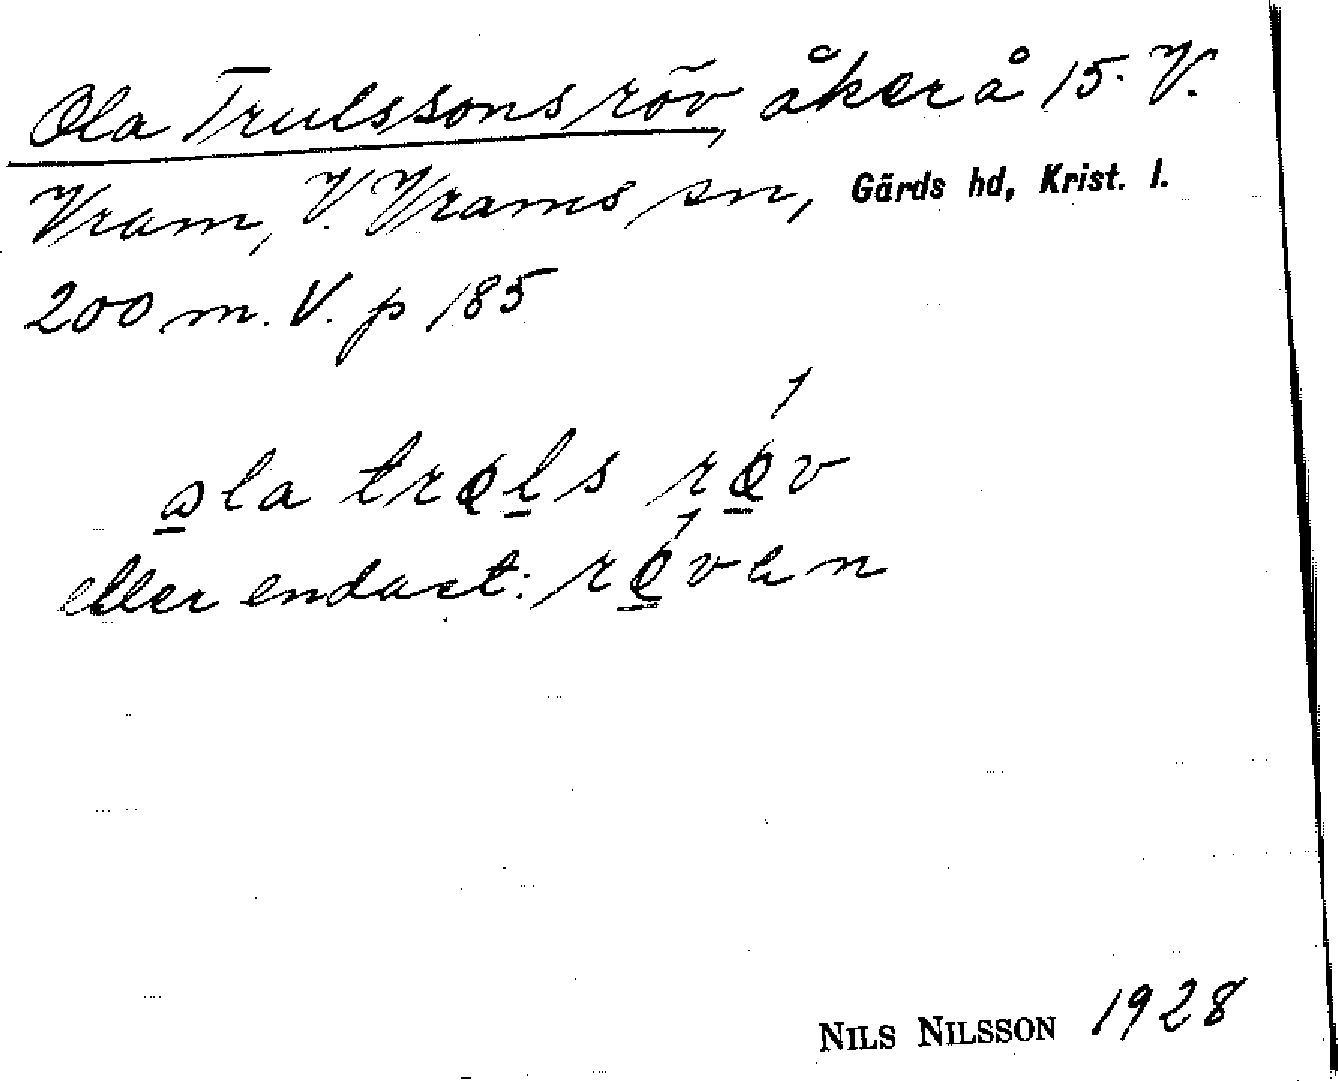 Ola Trulssons röv, åker å 15. V.
Vram, V. Vrams sn, Gärds hd, Krist. l.
200 m. V. p 185
ola trols röv
eller endast: röven
NILS NILSSON 1928